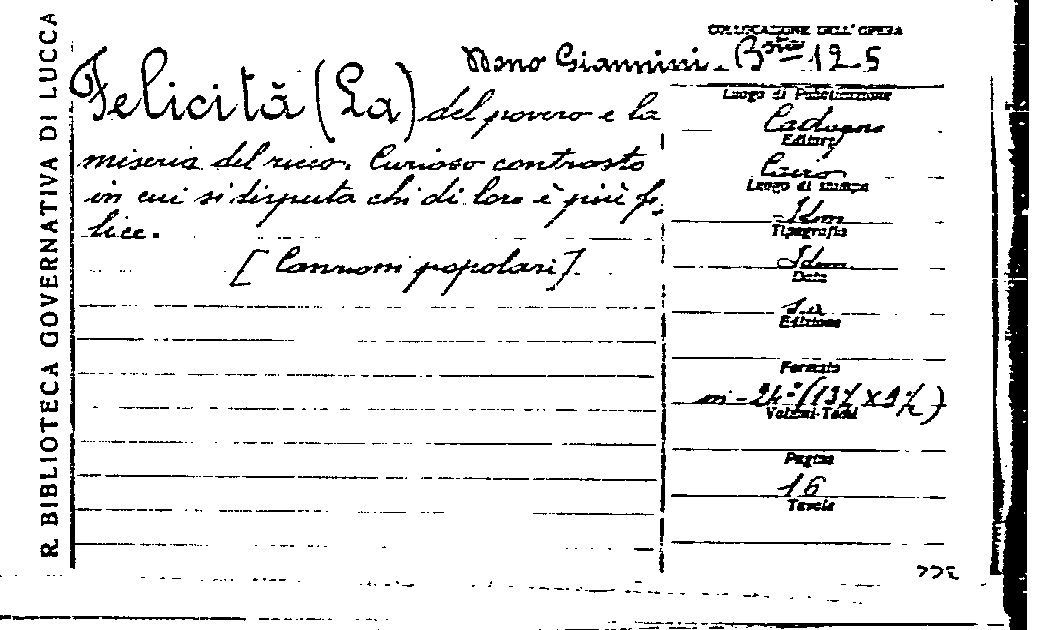 R. BIBLIOTECA GOVERNATIVA DI LUCCA
COLLOCAZIONE DELL'OPERA
Giannini. B 12 5
Felicità (La) del povero e la
miseria del ricco. Curioso contrasto
in cui si disputa chi di loro è più fe-
lice.
[Canzoni popolari].
Luogo di Pubblicazione
Codogno
Editore
Cairo
Luogo di stampa
Idem
Tipografia
Idem
Data
s.a.
Edizione
Formato
in-24° (13½ x 9½)
Volumi-Tomi
Pagine
16
Tavole